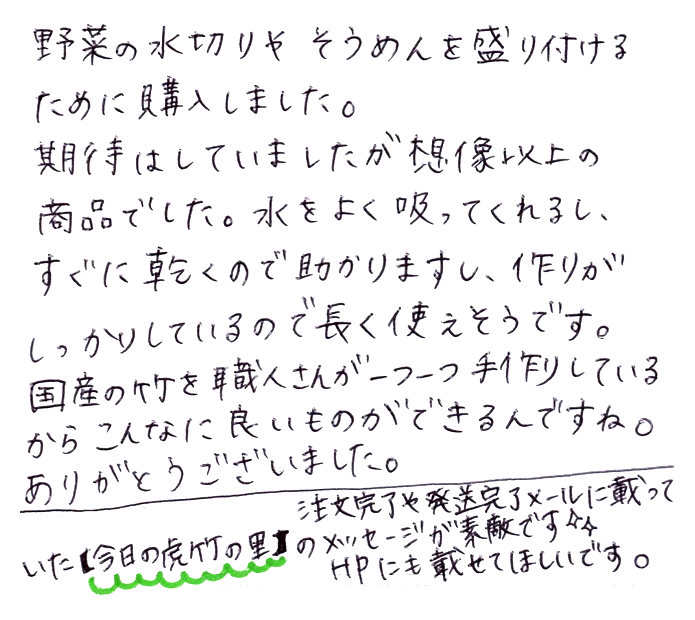 野菜の水切りや そうめんを盛り付ける
ために購入しました。
期待はしていましたが想像以上の
商品でした。水をよく吸ってくれるし、
すぐに乾くので助かりますし、作りが
しっかりしているので長く使えそうです。
国産の竹を職人さんが一つ一つ手作りしている
からこんなに良いものができるんですね。
ありがとうございました。
注文完了や発送完了メールに載って
いた【今日の虎竹の里】のメッセージが素敵です☆☆
HPにも載せてほしいです。